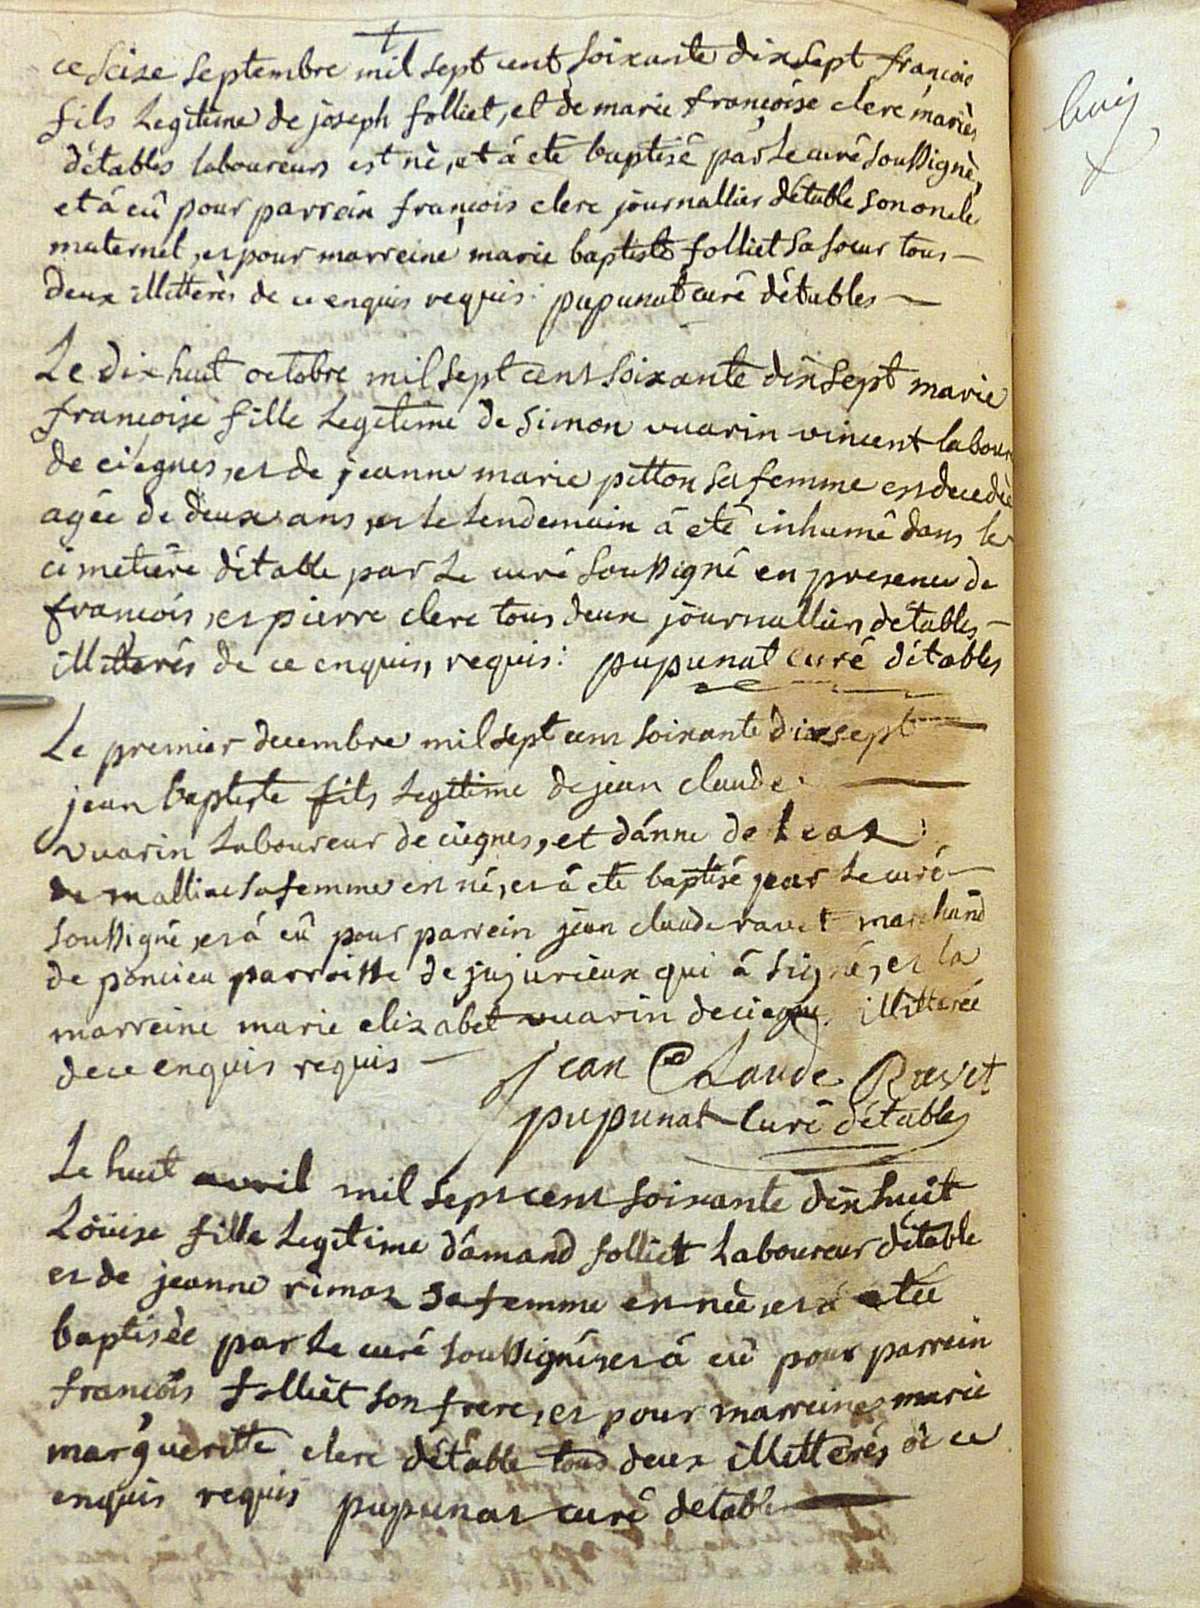 ce seize septembre mil sept cent soixante dix sept françois
fils legitime de joseph folliet, et de marie françoise clerc mariès
détables laboureurs est nè, et á eté baptisé par le curé soussignè,
et á eû pour parrain françois clerc journallier détable son oncle
maternel, et pour marreine marie baptiste folliet sa soeur tous
deux illitterès de ce enquis requis: pupunat curé détables
Le dix huit octobre mil sept cent soixante dix sept marie
françoise fille legitime de simon vuarin vincent labour
de ciégnes, et de jeanne marie pitton sa femme est decedèe
agée de deux ans, et le lendemain á eté inhumé dans le
cimetiére détable par le curé soussigné en presence de
françois, et pierre clerc tous deux journalliers détables
illitterés de ce enquis, requis: pupunat curé détables
Le premier decembre mil sept cent soixante dix sept
jean baptiste fils legitime de jean claude
vuarin laboureur de ciégnes, et dánne de
mallian sa femme est né, et á eté baptisé par le curé
soussigné, et á eû pour parrein jean claude ravet marchand
de poncieu parroisse de jujurieux qui á signé, et la
marreine marie elizabet vuarin de ciegne illitterée
de ce enquis requis
jean Claude Ravet
pupunat Curé détables
Le huit avril mil sept cent soixante dix huit
Loüise fille legitime dámand folliet laboureur détable
et de jeanne rimoz sa femme est nèe, et á etée
baptisèe par le curé soussigné, et á eû pour parrein
françois folliet son frere, et pour marreine marie
margueritte clerc détable tous deux illitterés de ce
enquis requis pupunat curé detable